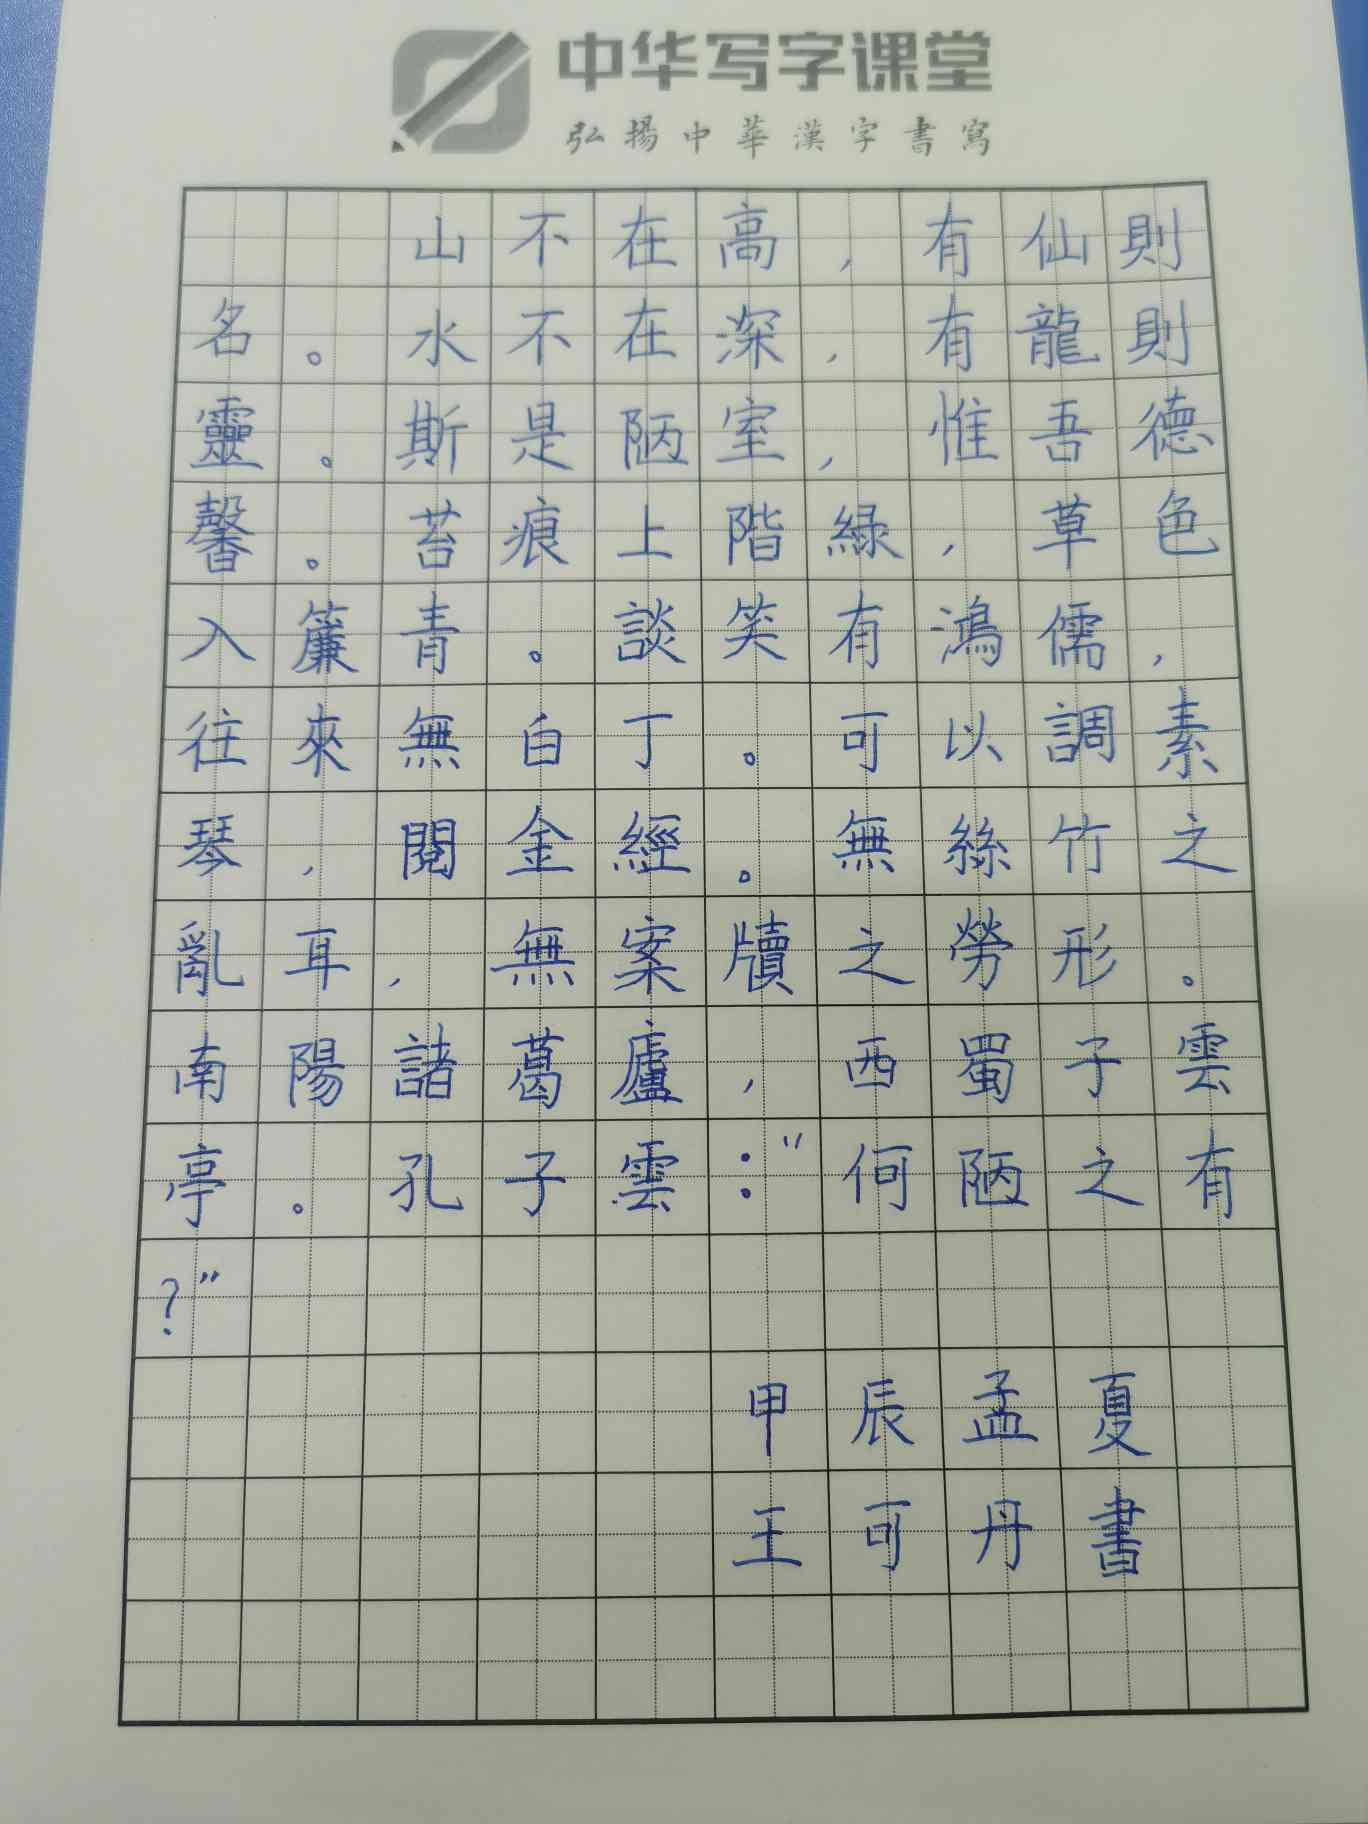 中华写字课堂
弘揚中華漢字書寫
山不在高，有仙則
名。水不在深，有龍則
靈。斯是陋室，惟吾德
馨。苔痕上階緑，草色
入簾青。談笑有鴻儒，
往來無白丁。可以調素
琴，閱金經。無絲竹之
亂耳，無案牘之勞形。
南陽諸葛廬，西蜀子雲
亭。孔子雲："何陋之有
?"
甲辰孟夏
王可丹書